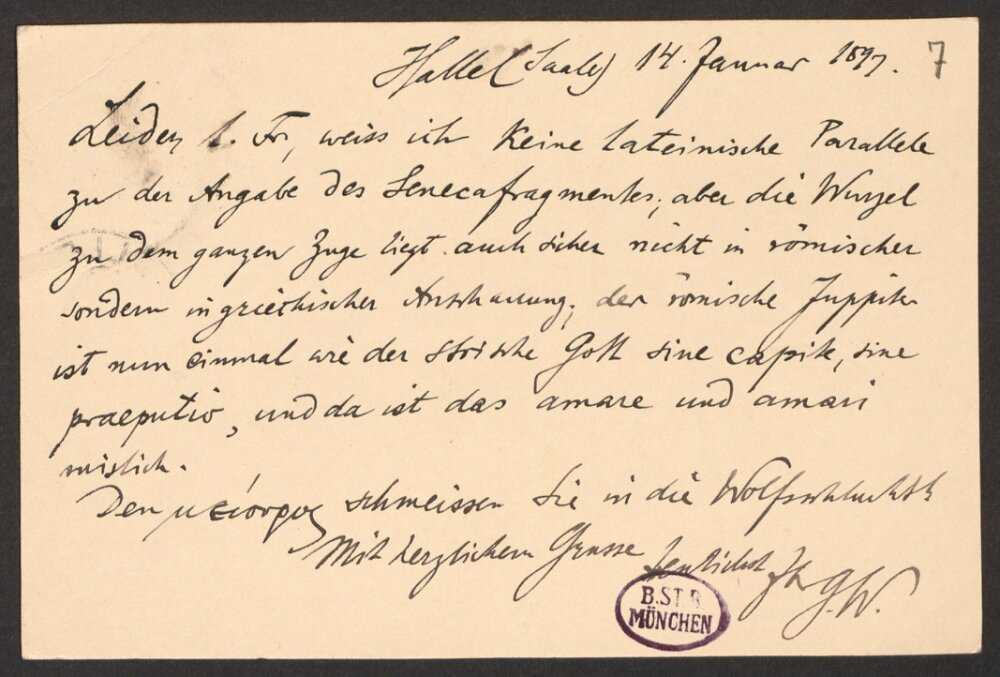 Halle (Saale) 14. Januar 1897. 7
Leider, l. Fr., weiss ich keine lateinische Parallele
zu der Angabe des Senecafragmentes; aber die Wurzel
zu dem ganzen Zuge liegt auch sicher nicht in römischer
sondern in griechischer Anschauung; der römische Juppiter
ist nun einmal wie der stoische Gott sine capite, sine
praeputio, und da ist das amare und amari
mislich.
Den schmeissen Sie in die Wolfsschlucht!
Mit herzlichem Grusse
Ihr G.W.
B.ST.B.
MÜNCHEN